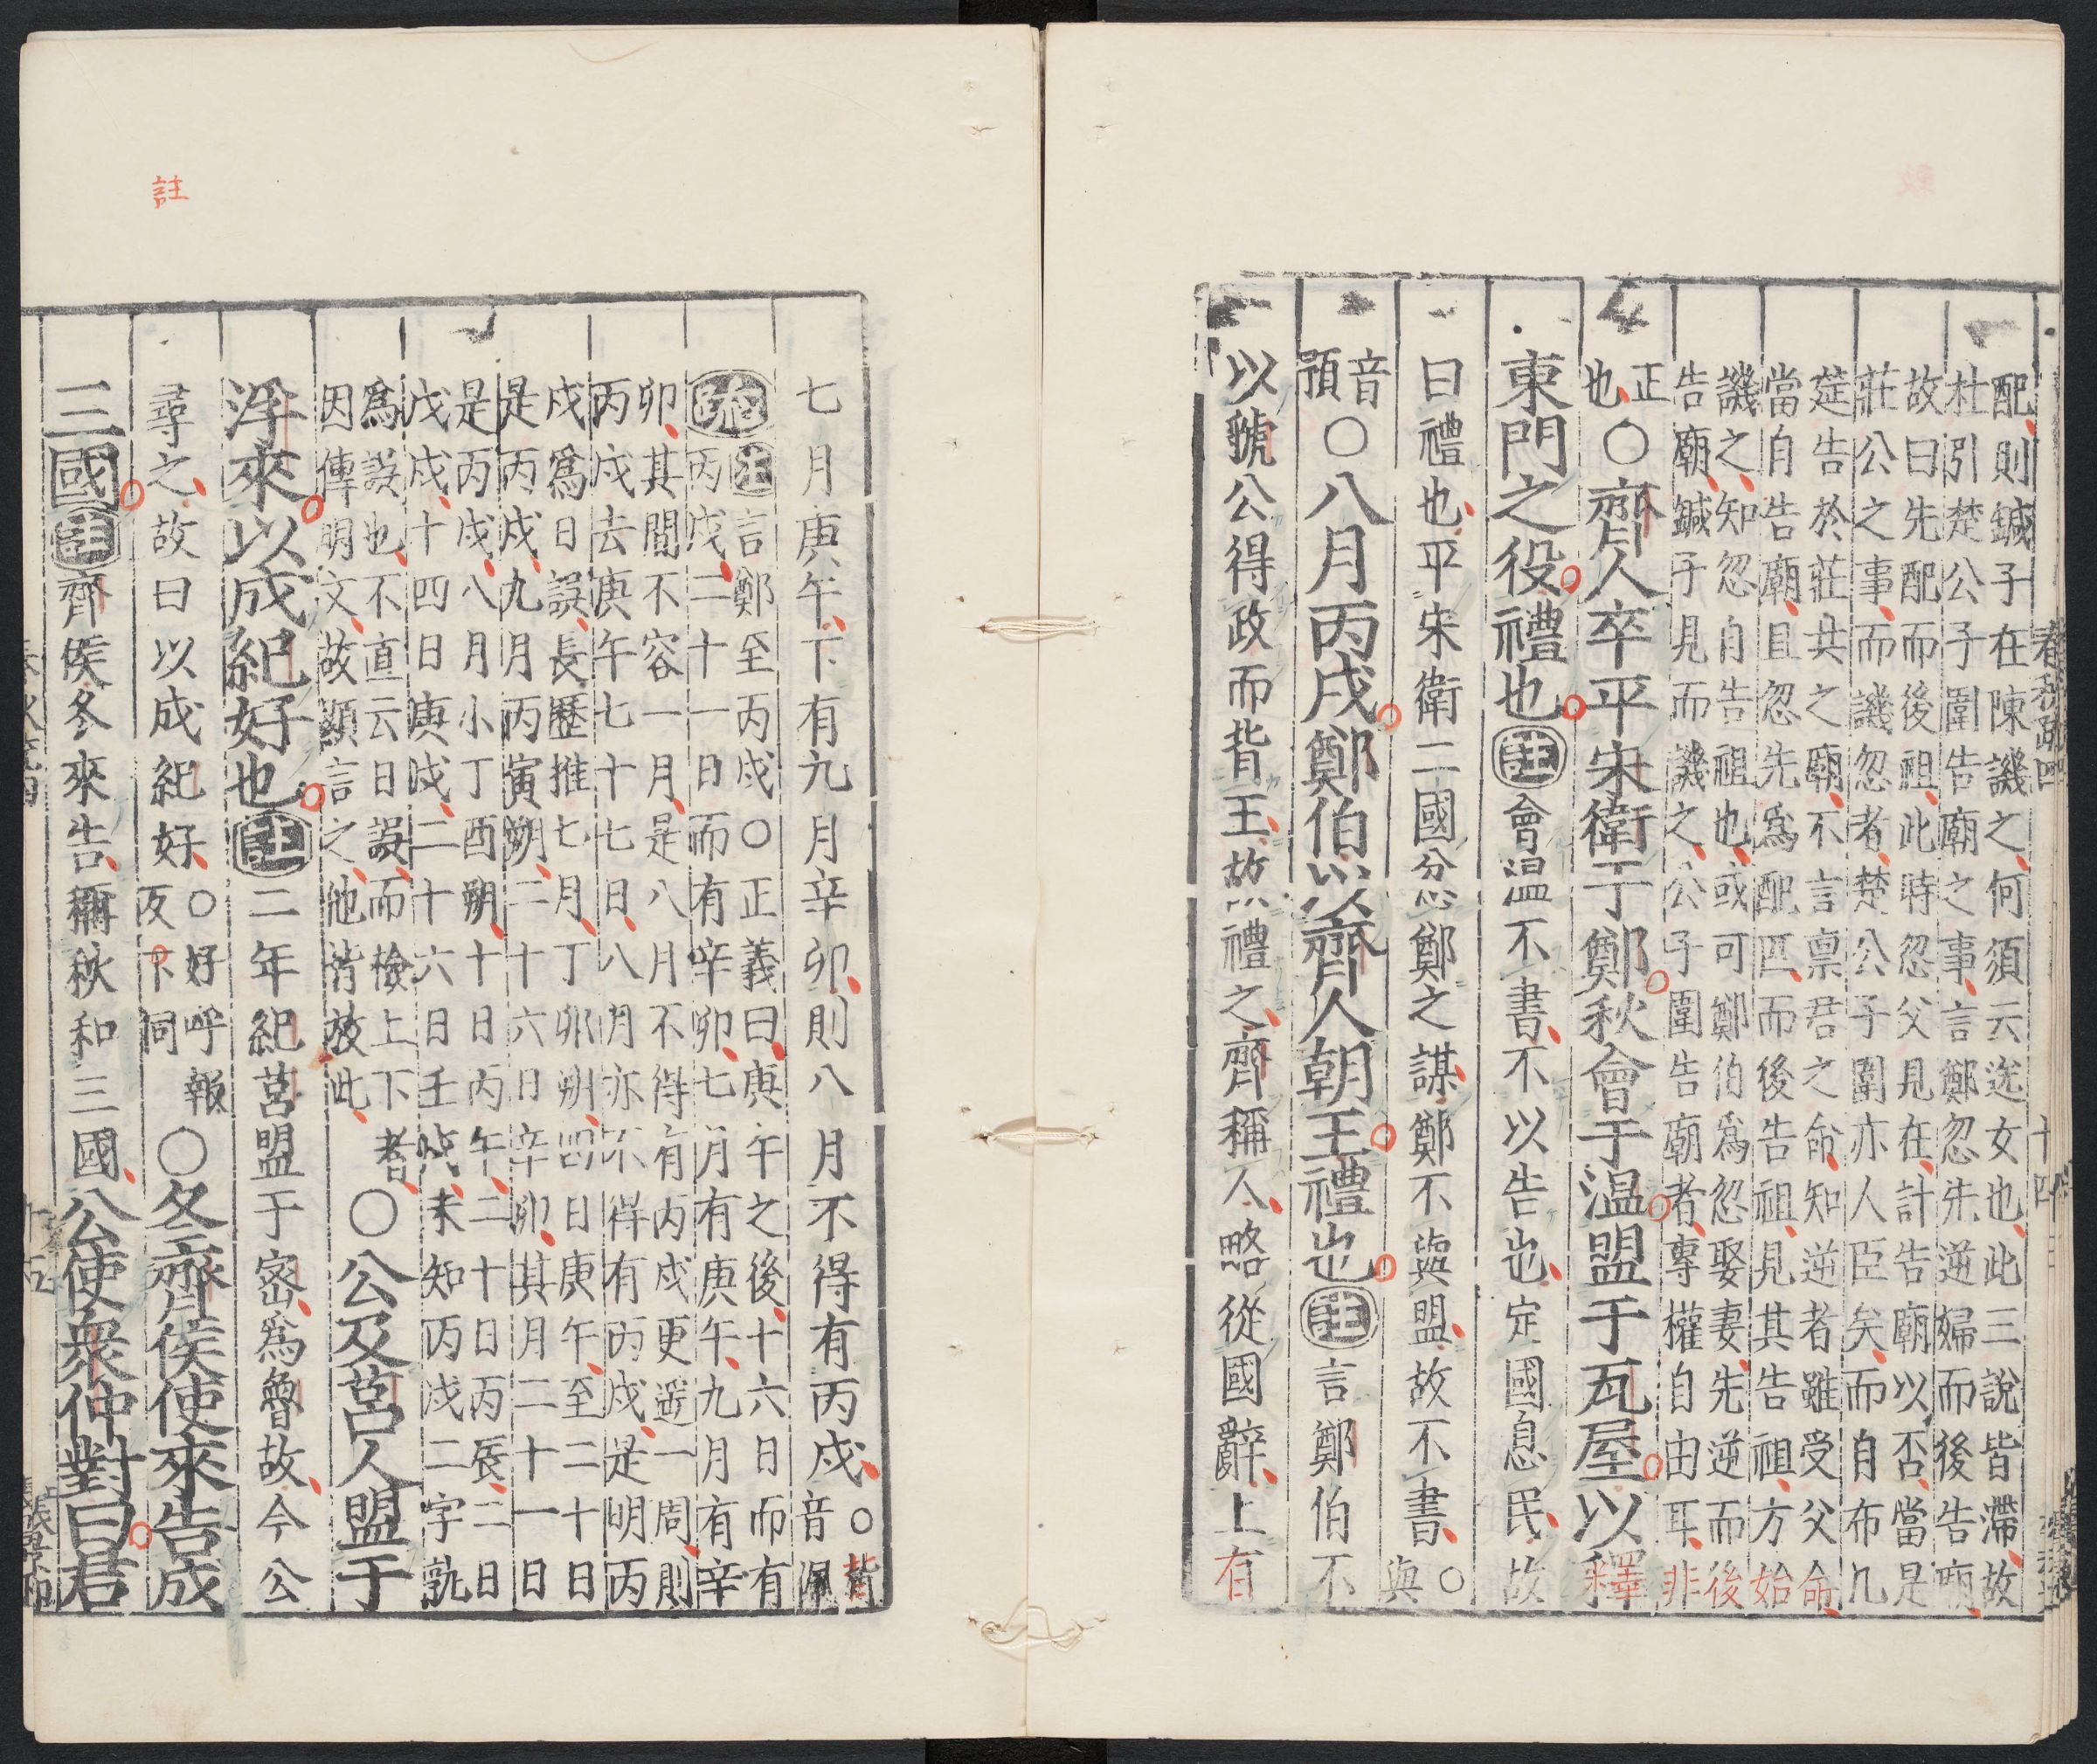 春秋疏四
十四
配則鍼子在陳譏之何須云送女也此三說皆滯故
杜引楚公子圍告廟之事言鄭忽先逆婦而後告廟
故曰先配而後祖此時忽父見在計告廟以否當是
莊公之事而譏忽者楚公子圍亦人臣矣而自布几
筵告於莊共之廟不言禀君之命知逆者雖受父命
當自告廟且忽先爲配匹而後告祖見其告祖方始
譏之知忽自告祖也或可鄭伯爲忽娶妻先逆而後
告廟鍼子見而譏之公子圍告廟者專權自由耳非
正
也○齊人卒平宋衛于鄭秋會于温盟于瓦屋以釋
東門之役禮也註會温不書不以告也定國息民故
曰禮也平宋衛二國忿鄭之謀鄭不與盟故不書○與
音
預○八月丙戌鄭伯以齊人朝王禮也註言鄭伯不
以虢公得政而背王故以禮之齊稱人略從國辭上有
註
七月庚午下有九月辛卯則八月不得有丙戌○背
音佩
疏注言鄭至丙戌○正義曰庚午之後十六日而有
丙戌二十一日而有辛卯七月有庚午九月有辛
卯其間不容一月是八月不得有丙戌更遥一周則
丙戌去庚午七十七日八月亦不得有丙戌是明丙
戌爲日誤長歷推七月丁卯朔四日庚午至二十日
是丙戌九月丙寅朔二十六日辛卯其月二十一日
是丙戌八月小丁酉朔十日丙午二十日丙辰二日
戊戌十四日庚戌二十六日壬戌未知丙戌二字孰
爲誤也不直云日誤而檢上下者
因傳明文故顯言之他皆放此
○公及莒人盟于
浮來以成紀好也註二年紀莒盟于密爲魯故今公
尋之故曰以成紀好○好呼報
反下同○冬齊侯使來告成
三國註齊侯冬來告稱秋和三國公使衆仲對曰君